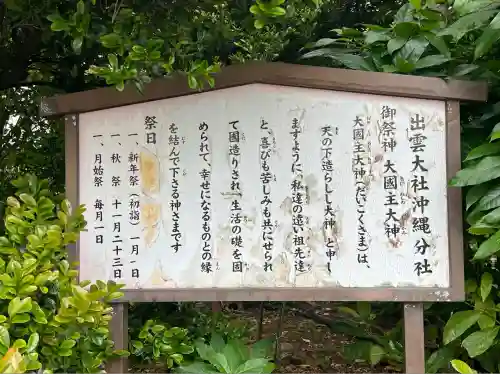 出雲大社沖縄分社
御祭神 大國主大神
大國主大神(だいこくさま)は、
天の下造らしし大神と申し
ますように、私達の遠い祖先達
と、喜びも苦しみも共にせられ
て國造りされ、生活の礎を固
められて、幸せになるものとの縁
を結んで下さる神さまです
祭日
一、新年祭(初詣)一月一日
一、秋 祭 十一月二十三日
一、月始祭 毎月一日